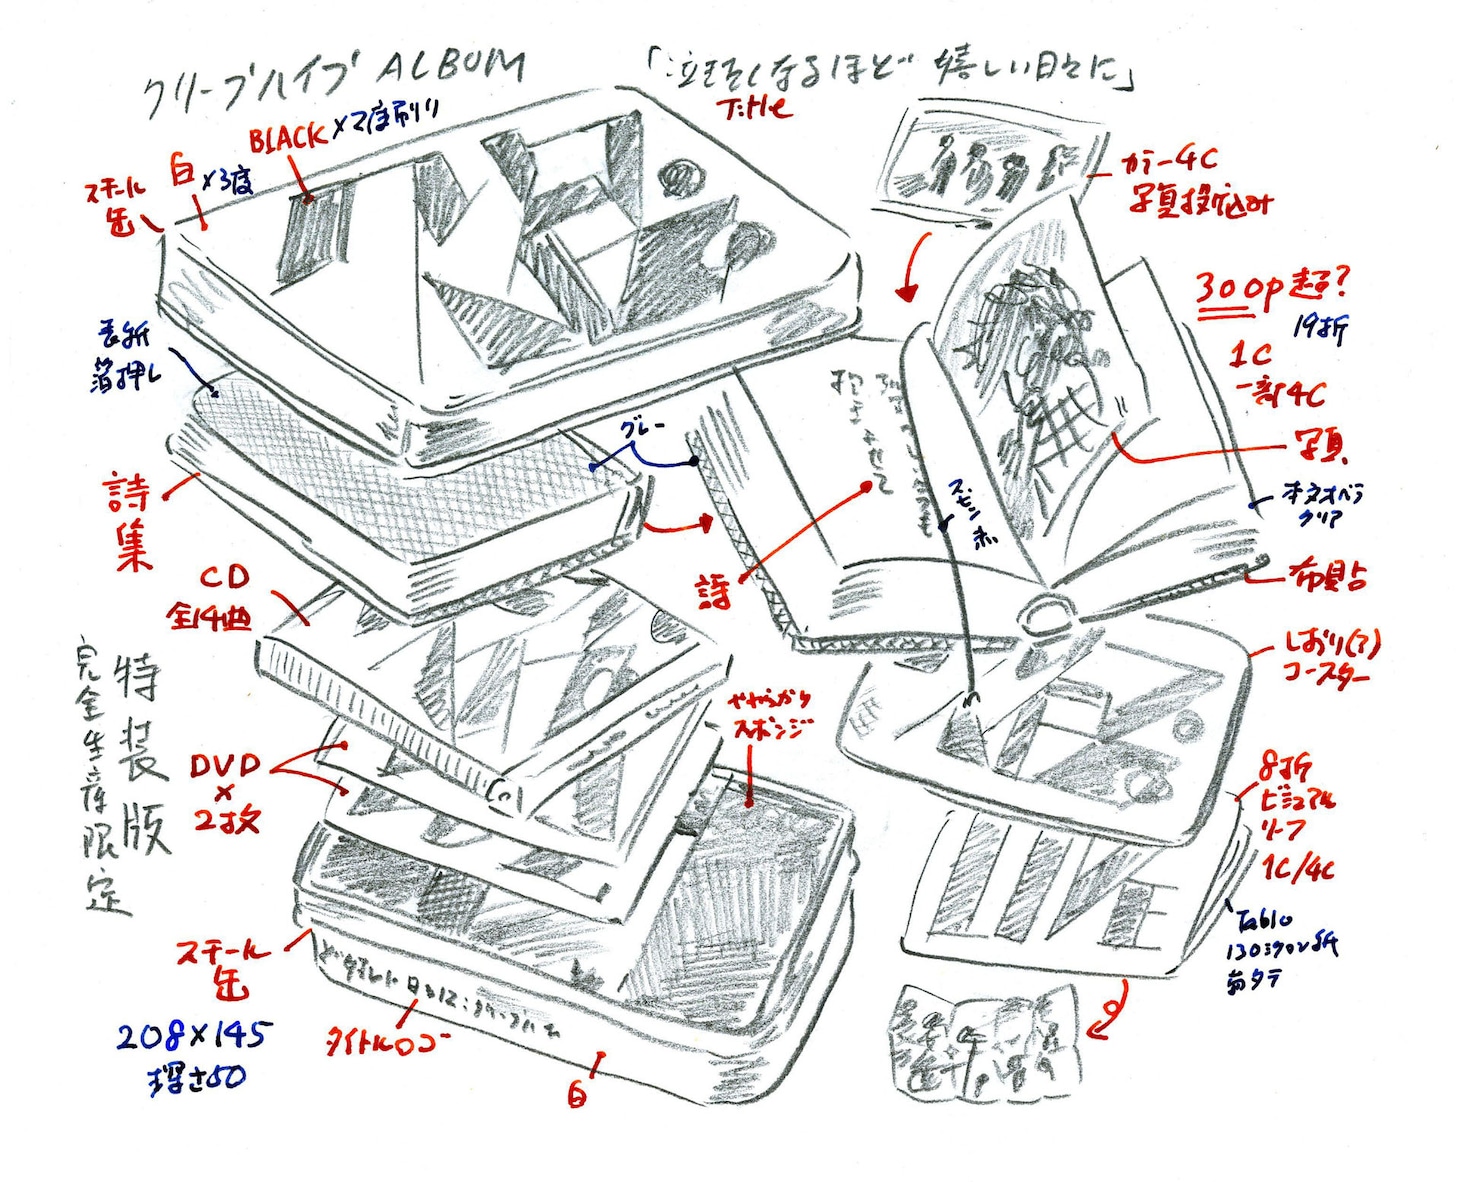 クリープハイプ ALBUM
「泣きたくなるほど嬉しい日々に」
Title
BLACK×2度刷り
スチール
缶
白×3度
カラー4C
写真投げ込み
300p超?
19折
1C
一部4C
写真
表紙
箔押し
グレー
詩
集
スピン 赤
詩
布貼
CD
全14曲
しおり(?)
コースター
特装版
完全生産限定
DVD
×
2枚
やわらかい
スポンジ
8折
ビジュアル
リーフ
1C/4C
Tablo
スチール
缶
208×145
深さ50
タイトルロゴ
白